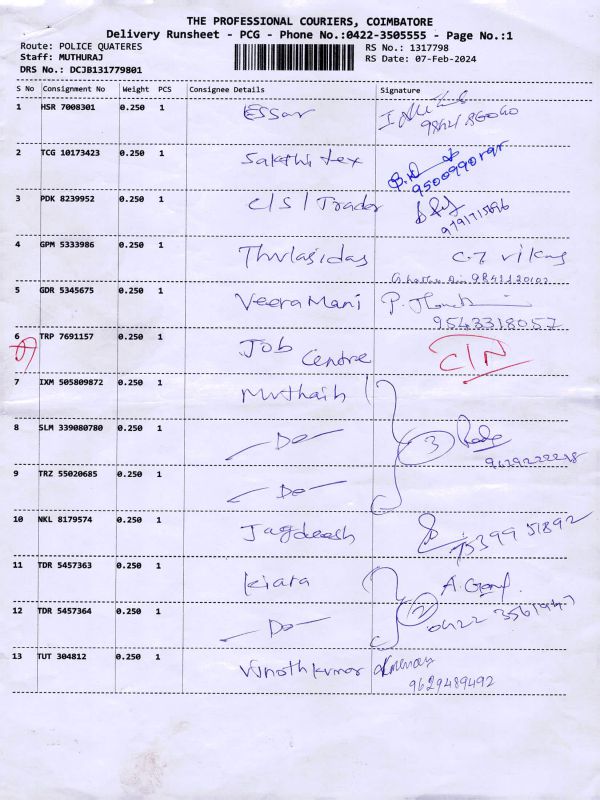 THE PROFESSIONAL COURIERS, COIMBATORE
Delivery Runsheet - PCG - Phone No.:0422-3505555 - Page No.:1
Route: POLICE QUATERES RS No.: 1317798
Staff: MUTHURAJ RS Date: 07-Feb-2024
DRS No.: DCJB131779801
S No Consignment No Weight PCS Consignee Details Signature
1 HSR 7008301 0.250 1 Essar
2 TCG 10173423 0.250 1 Sakthi tex
3 PDK 8239952 0.250 1 C/S/Trador
9791715696
4 GPM 5333986 0.250 1 Thulasidas C.T vikas
5 GDR 5345675 0.250 1 Veera Mani
9543318057
6 TRP 7691157 0.250 1 Job Centre C/N
7 IXM 505809872 0.250 1 Muthaih
8 SLM 339080780 0.250 1 - Do - 3
9 TRZ 55020685 0.250 1 - Do -
10 NKL 8179574 0.250 1 Jagdeesh
75399 51892
11 TDR 5457363 0.250 1 Kiara
12 TDR 5457364 0.250 1 - Do - 2
0422
13 TUT 304812 0.250 1 Vinothkumar
9629489492